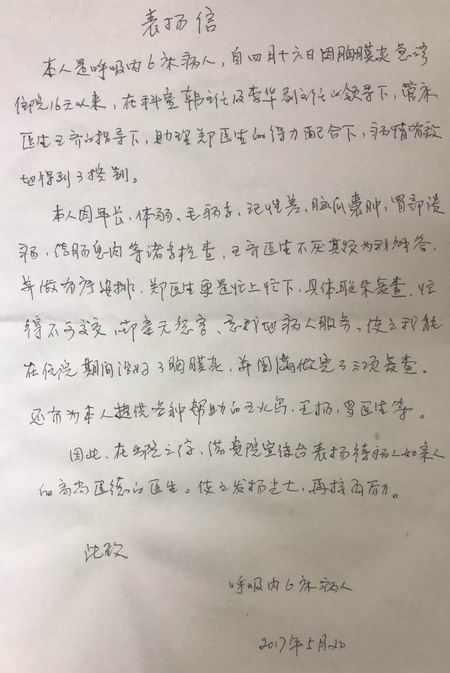 表扬信
本人是呼吸内6床病人，自四月十六日因胸膜炎急诊
住院16天以来，在科室韩主任及李华副主任的领导下，管床
医生王齐的指导下，助理郑医生的得力配合下，病情有效
地得到了控制。
本人因年长、体弱、毛病多、记性差、脑瓜囊肿、胃部溃
疡、结肠息肉等诸多检查，王齐医生不厌其烦为我解答，
并做有序安排，郑医生更是忙上忙下，具体联系复查，忙
得不可交，却毫无怨言、意为病人服务。使之我能
在住院期间治好了胸膜炎，并圆满做完了三项复查。
还有为本人提供各种帮助的王火鸟、王扬、罗医生等。
因此，在出院之际，借贵院宣传台表扬待病人如亲人
的高尚医德的医生。使之发扬光大，再接再励。
此致
呼吸内6床病人
2017年5月2日